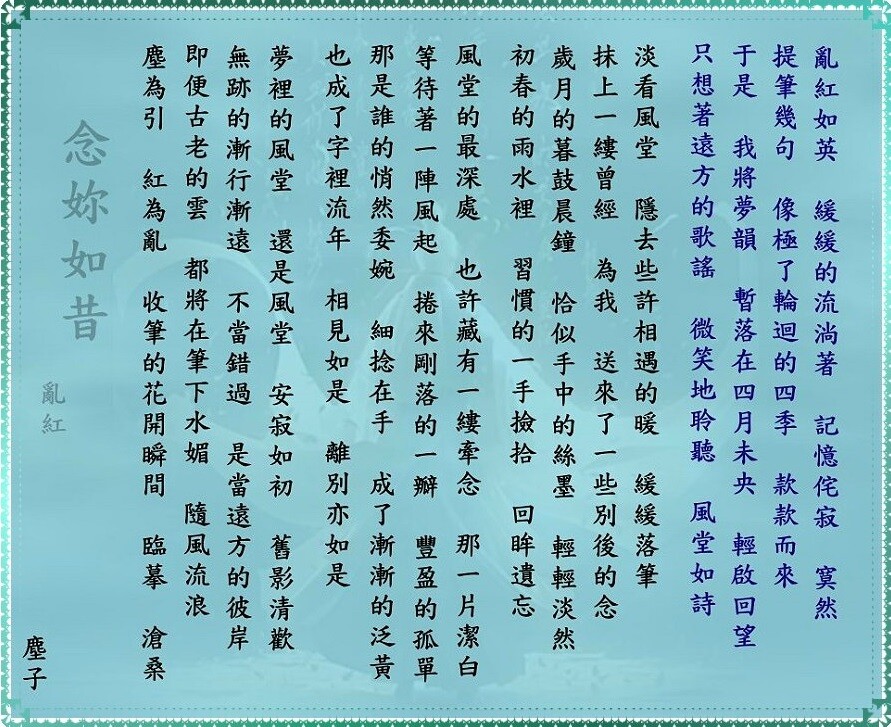 亂紅如英　緩緩的流淌著　記憶侘寂　寞然
提筆幾句　像極了輪迴的四季　款款而來
于是　我將夢韻　暫落在四月未央　輕啟回望
只想著遠方的歌謠　微笑地聆聽　風堂如詩
淡看風堂　隱去些許相遇的暖　緩緩落筆
抹上一縷曾經　為我　送來了一些別後的念
歲月的暮鼓晨鐘　恰似手中的絲墨　輕輕淡然
初春的雨水裡　習慣的一手撿拾　回眸遺忘
風堂的最深處　也許藏有一縷牽念　那一片潔白
等待著一陣風起　捲來剛落的一瓣　豐盈的孤單
那是誰的悄然委婉　細捻在手　成了漸漸的泛黃
也成了字裡流年　相見如是　離別亦如是
夢裡的風堂　還是風堂　安寂如初　舊影清歡
無跡的漸行漸遠　不當錯過　是當遠方的彼岸
即便古老的雲　都將在筆下水媚　隨風流浪
塵為引　紅為亂　收筆的花開瞬間　臨摹　滄桑
念妳如昔
亂紅
塵子